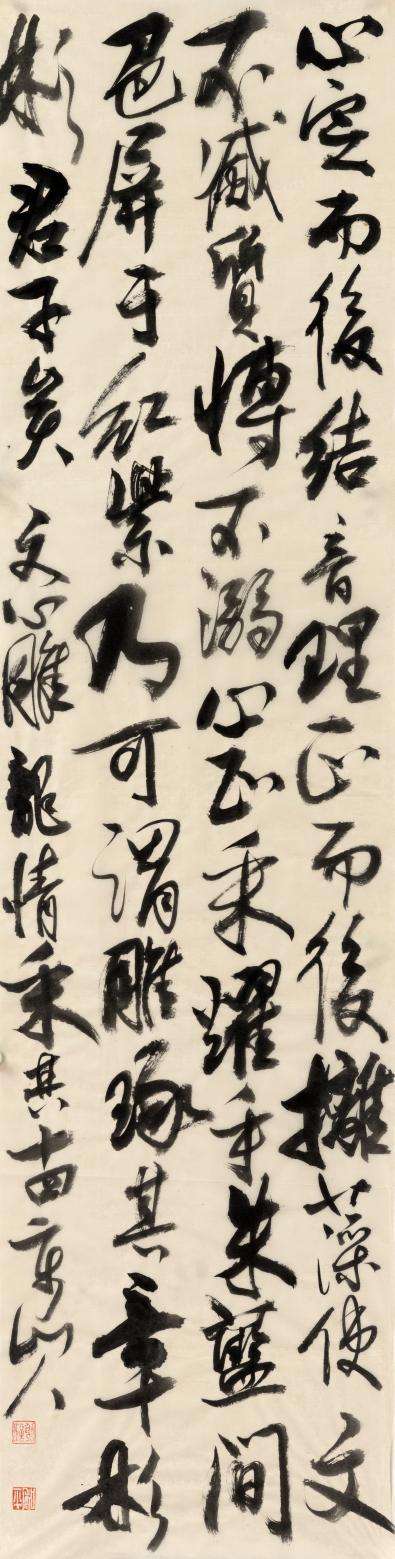 心定而後結音理正而後攡藻使文
不滅質愽不溺心正采耀乎朱藍間
色屏于紅紫乃可謂雕琢其章彬
彬君子矣 文心雕龍情采其十四山人